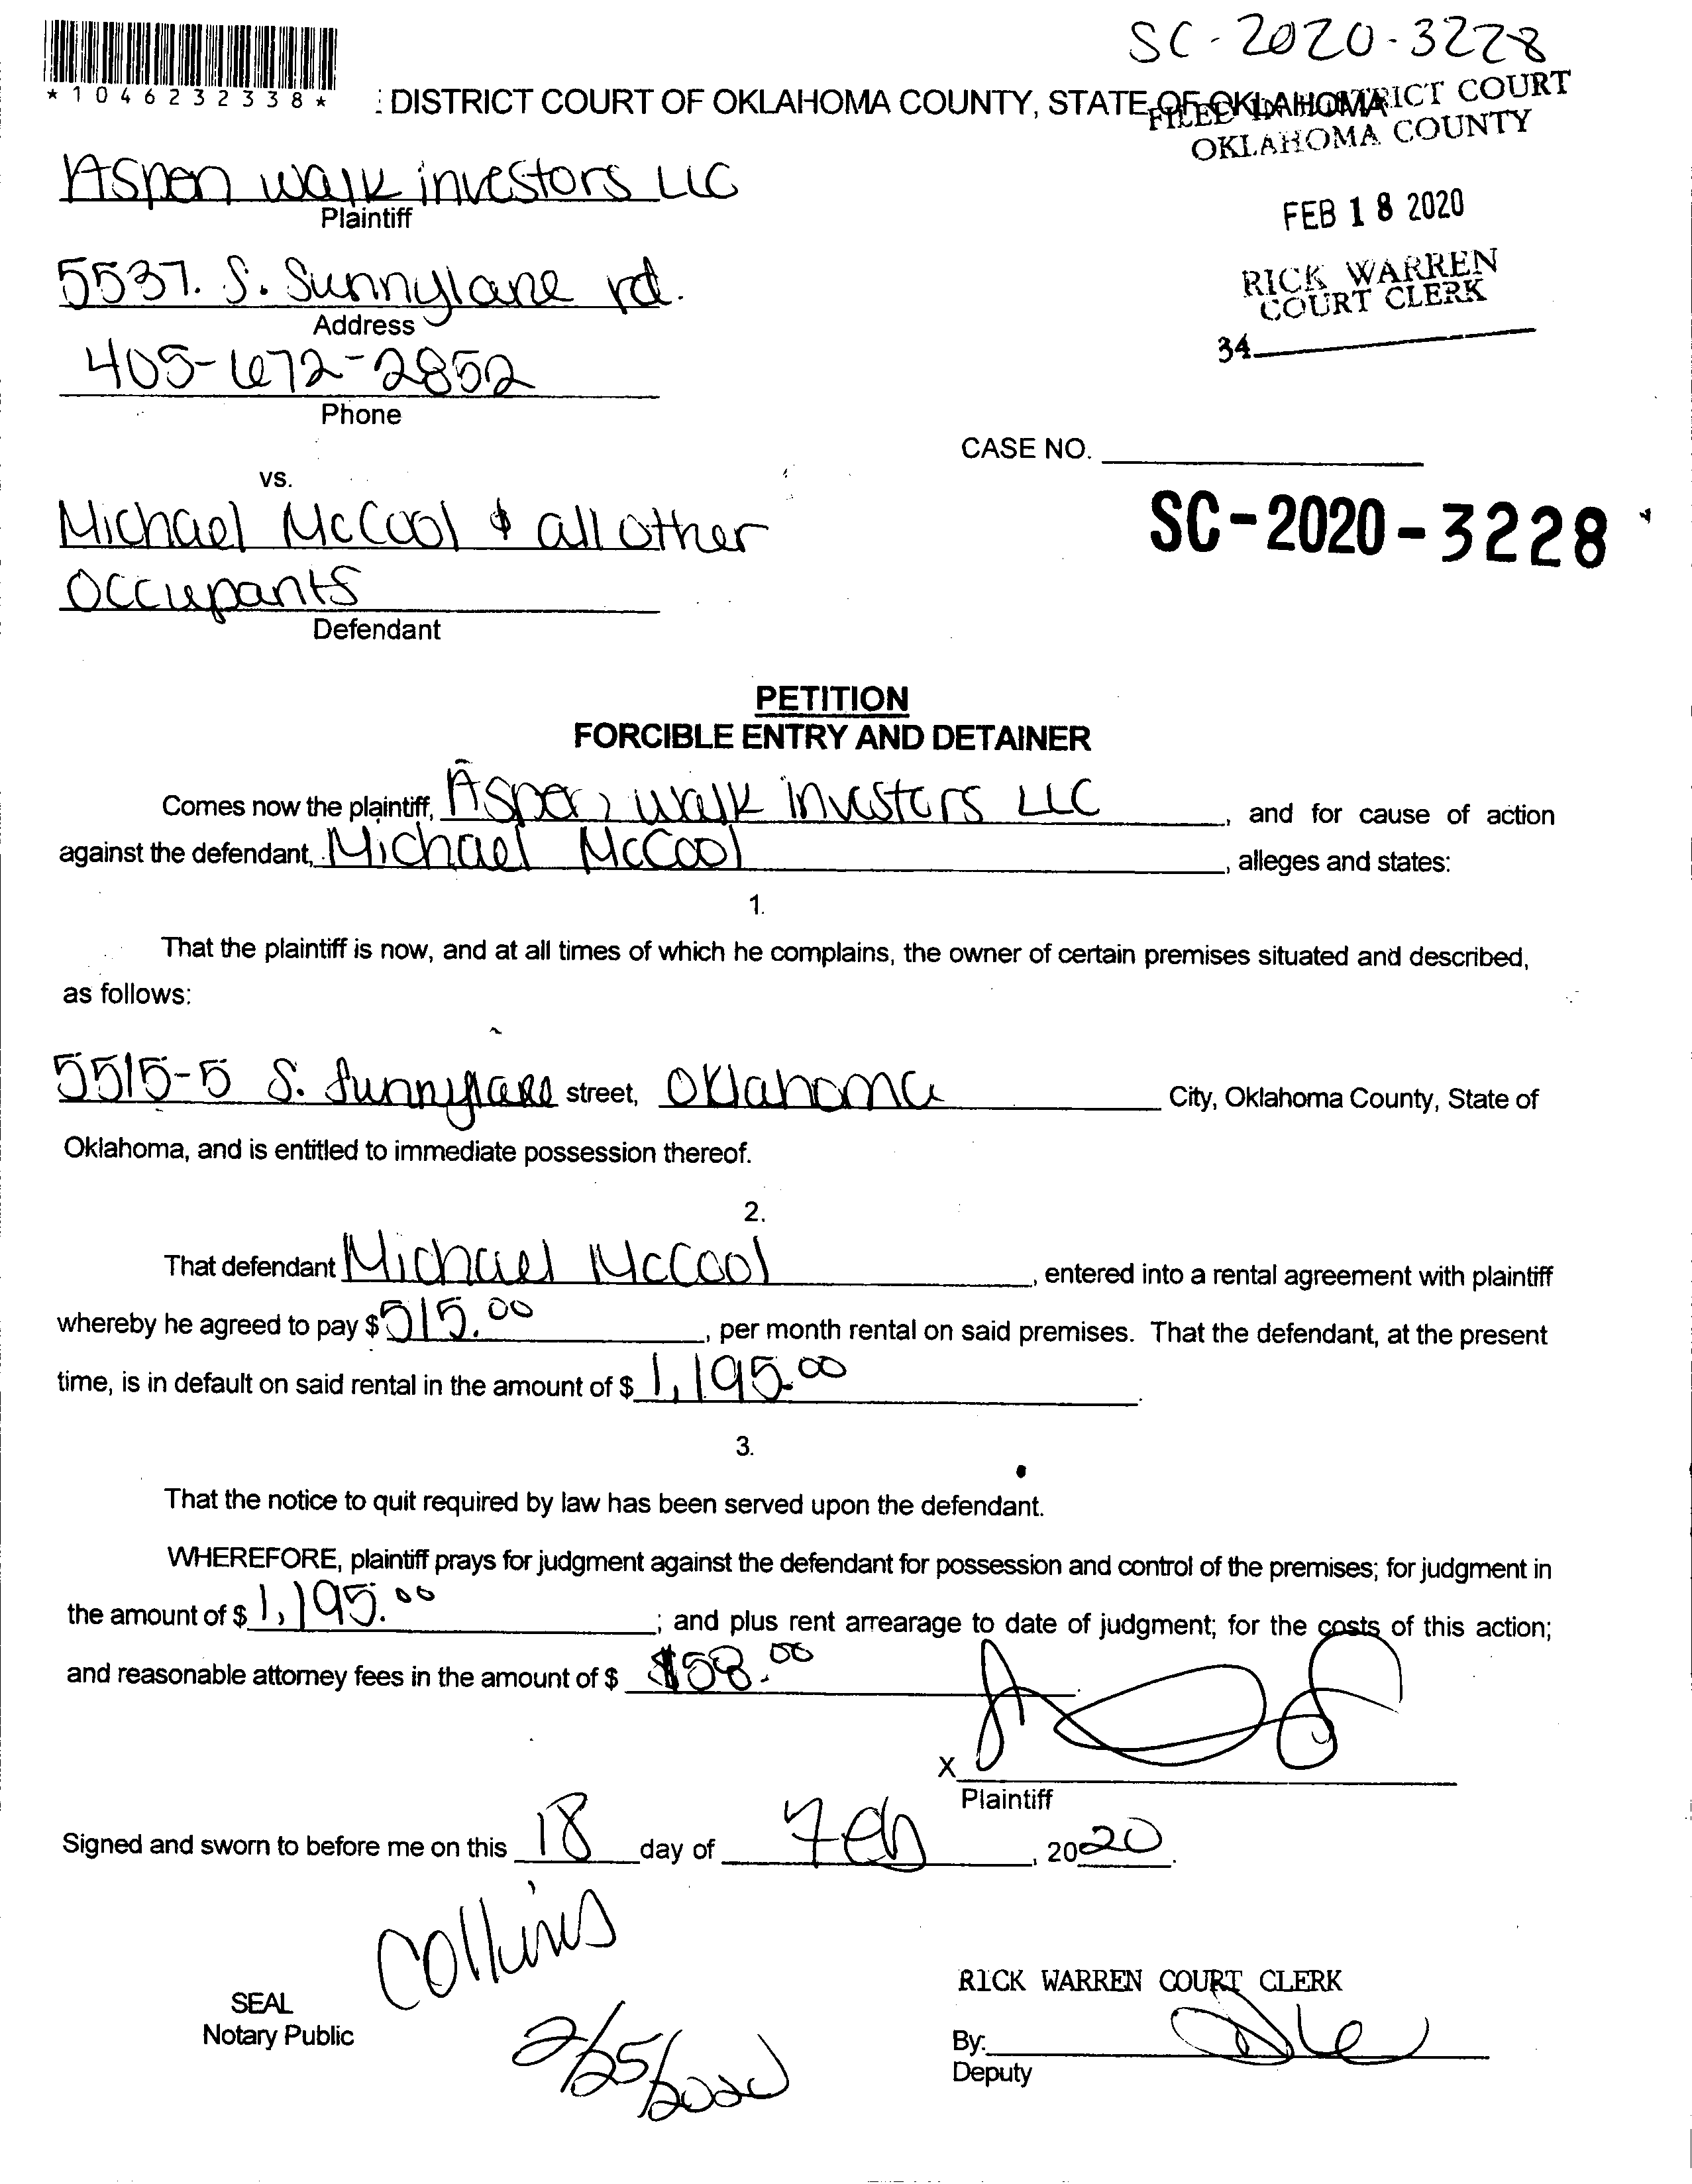 SC-2020-3228
*1046232338*
: DISTRICT COURT OF OKLAHOMA COUNTY, STATE OF OKLAHOMA
FILED IN DISTRICT COURT
OKLAHOMA COUNTY
Aspen walk investors LLC
Plaintiff
FEB 18 2020
5537. S. Sunnylane rd.
Address
RICK WARREN
COURT CLERK
34
405-672-2852
Phone
CASE NO.
vs.
Michael McCool & all other
Occupants
Defendant
SC-2020-3228
PETITION
FORCIBLE ENTRY AND DETAINER
Comes now the plaintiff, Aspen walk investors LLC, and for cause of action
against the defendant, Michael McCool, alleges and states:
1.
That the plaintiff is now, and at all times of which he complains, the owner of certain premises situated and described,
as follows:
5515-5 S. Sunnylane street, Oklahoma City, Oklahoma County, State of
Oklahoma, and is entitled to immediate possession thereof.
2.
That defendant Michael McCool, entered into a rental agreement with plaintiff
whereby he agreed to pay $515.00, per month rental on said premises. That the defendant, at the present
time, is in default on said rental in the amount of $1,195.00.
3.
That the notice to quit required by law has been served upon the defendant.
WHEREFORE, plaintiff prays for judgment against the defendant for possession and control of the premises; for judgment in
the amount of $1,195.00; and plus rent arrearage to date of judgment; for the costs of this action;
and reasonable attorney fees in the amount of $ $58.00.
X
Plaintiff
Signed and sworn to before me on this 18 day of Feb, 2020.
Collins
2/25/2020
SEAL
Notary Public
RICK WARREN COURT CLERK
By:
Deputy